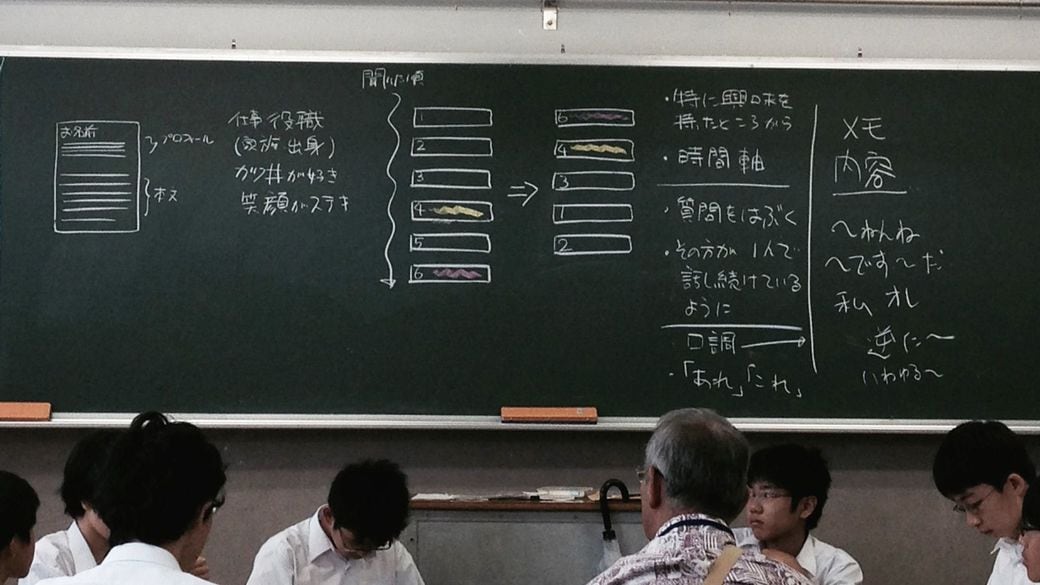 お名前
プロフィール
本文
仕事 役職
(家族 出身)
カツ丼が好き
笑顔がステキ
聞いた順
1
2
3
4
5
6
⇒
6
4
3
1
2
・特に興味を
持ったところから
・時間軸
・質問をはぶく
・その方が1人で
話し続けている
ように
口調
・「あれ」「これ」
メモ
内容
〜ねんね
〜です〜だ
私 オレ
逆に〜
いわゆる〜